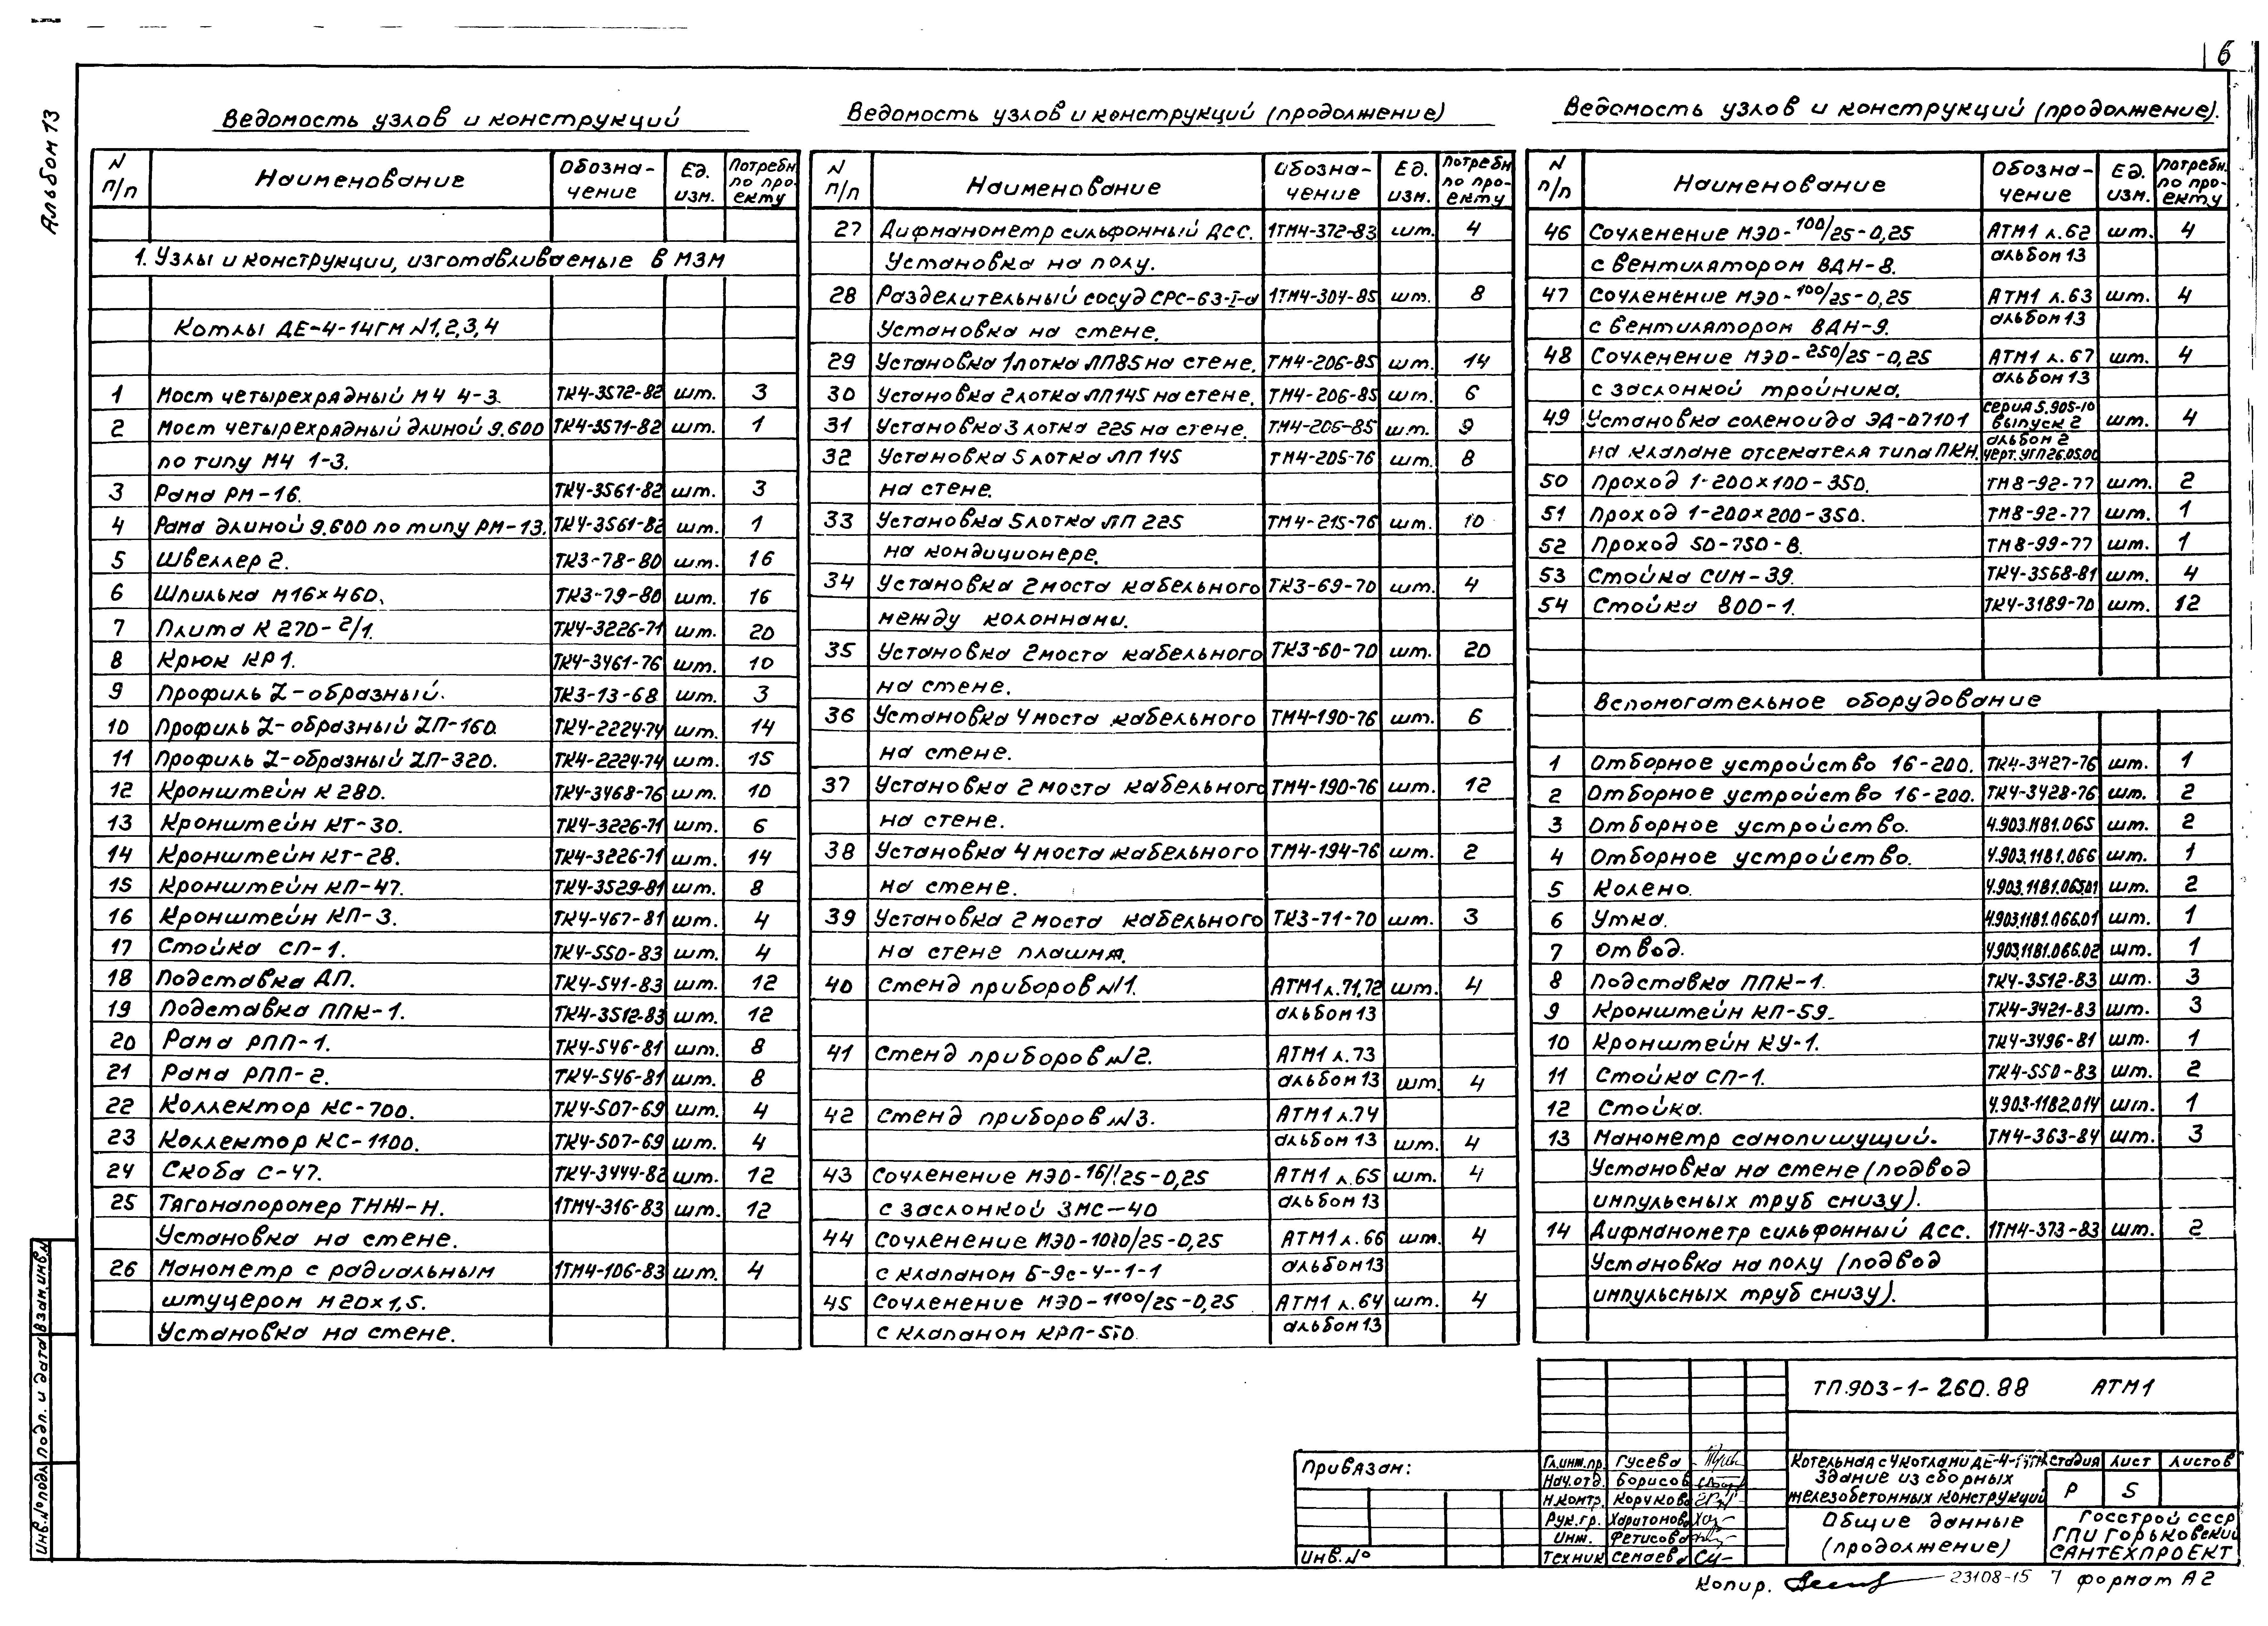 6
Альбом 13
Ведомость узлов и конструкций
N п/п Наименование Обозна-чение Ед. изм. Потребн. по про-екту
1. Узлы и конструкции, изготавливаемые в МЗМ
Котлы ДЕ-4-14ГМ N1,2,3,4
1 Мост четырехрядный М4 4-3. ТК4-3572-82 шт. 3
2 Мост четырехрядный длиной 9.600 ТК4-3571-82 шт. 1
по типу М4 1-3.
3 Рама РМ-16. ТК4-3561-82 шт. 3
4 Рама длиной 9.600 по типу РМ-13. ТК4-3561-82 шт. 1
5 Швеллер 2. ТК3-78-80 шт. 16
6 Шпилька М16×460. ТК3-79-80 шт. 16
7 Плита К 270-2/1. ТК4-3226-71 шт. 20
8 Крюк КР1. ТК4-3461-76 шт. 10
9 Профиль Z-образный. ТК3-13-68 шт. 3
10 Профиль Z-образный ZП-160. ТК4-2224-74 шт. 14
11 Профиль Z-образный ZП-320. ТК4-2224-74 шт. 15
12 Кронштейн К 280. ТК4-3468-76 шт. 10
13 Кронштейн КТ-30. ТК4-3226-71 шт. 6
14 Кронштейн КТ-28. ТК4-3226-71 шт. 14
15 Кронштейн КП-47. ТК4-3529-81 шт. 8
16 Кронштейн КП-3. ТК4-467-81 шт. 4
17 Стойка СП-1. ТК4-550-83 шт. 4
18 Подставка ДП. ТК4-541-83 шт. 12
19 Подставка ППК-1. ТК4-3512-83 шт. 12
20 Рама РПП-1. ТК4-546-81 шт. 8
21 Рама РПП-2. ТК4-546-81 шт. 8
22 Коллектор КС-700. ТК4-507-69 шт. 4
23 Коллектор КС-1100. ТК4-507-69 шт. 4
24 Скоба С-47. ТК4-3444-82 шт. 12
25 Тягонапоромер ТНЖ-Н. 1ТМ4-316-83 шт. 12
Установка на стене.
26 Манометр с радиальным 1ТМ4-106-83 шт. 4
штуцером М20×1,5.
Установка на стене.
Ведомость узлов и конструкций (продолжение)
N п/п Наименование Обозна-чение Ед. изм. Потребн по про-екту
27 Дифманометр сильфонный ДСС. 1ТМ4-372-83 шт. 4
Установка на полу.
28 Разделительный сосуд СРС-63-I-а 1ТМ4-304-85 шт. 8
Установка на стене.
29 Установка 1 лотка ЛП85 на стене. ТМ4-206-85 шт. 14
30 Установка 2 лотка ЛП145 на стене. ТМ4-206-85 шт. 6
31 Установка 3 лотка 225 на стене. ТМ4-206-85 шт. 9
32 Установка 5 лотка ЛП 145 ТМ4-205-76 шт. 8
на стене.
33 Установка 5 лотка ЛП 225 ТМ4-215-76 шт. 10
на кондиционере.
34 Установка 2 моста кабельного ТК3-69-70 шт. 4
между колоннами.
35 Установка 2 моста кабельного ТК3-60-70 шт. 20
на стене.
36 Установка 4 моста кабельного ТМ4-190-76 шт. 6
на стене.
37 Установка 2 моста кабельного ТМ4-190-76 шт. 12
на стене.
38 Установка 4 моста кабельного ТМ4-194-76 шт. 2
на стене.
39 Установка 2 моста кабельного ТК3-71-70 шт. 3
на стене плашмя.
40 Стенд приборов N1. АТМ1 л.71,72 шт. 4
альбом 13
41 Стенд приборов N2. АТМ1 л.73
альбом 13 шт. 4
42 Стенд приборов N3. АТМ1 л.74
альбом 13 шт. 4
43 Сочленение МЭО-16/25-0,25 АТМ1 л.65 шт. 4
с заслонкой ЗМС-40 альбом 13
44 Сочленение МЭО-100/25-0,25 АТМ1 л.66 шт. 4
с клапаном Б-9с-4--1-1 альбом 13
45 Сочленение МЭО-100/25-0,25 АТМ1 л.64 шт. 4
с клапаном КРП-50. альбом 13
Ведомость узлов и конструкций (продолжение).
N п/п Наименование Обозна-чение Ед. изм. Потребн. по про-екту
46 Сочленение МЭО-100/25-0,25 АТМ1 л.62 шт. 4
с вентилятором ВДН-8. альбом 13
47 Сочленение МЭО-100/25-0,25 АТМ1 л.63 шт. 4
с вентилятором ВДН-9. альбом 13
48 Сочленение МЭО-250/25-0,25 АТМ1 л.67 шт. 4
с заслонкой тройника. альбом 13
49 Установка соленоида ЭД-07101 серия 5.905-10 выпуск 2 шт. 4
на клапане отсекателя типа ПКН. альбом 2 черт.УГП26.05.00
50 Проход 1-200×100-350. ТМ8-92-77 шт. 2
51 Проход 1-200×200-350. ТМ8-92-77 шт. 1
52 Проход 50-750-В. ТМ8-99-77 шт. 1
53 Стойка СИМ-39. ТК4-3568-81 шт. 4
54 Стойка 800-1. ТК4-3189-70 шт. 12
Вспомогательное оборудование
1 Отборное устройство 16-200. ТК4-3427-76 шт. 1
2 Отборное устройство 16-200. ТК4-3428-76 шт. 2
3 Отборное устройство. 4.903.1181.065 шт. 2
4 Отборное устройство. 4.903.1181.066 шт. 1
5 Колено. 4.903.1181.06501 шт. 2
6 Утка. 4.903.1181.066.01 шт. 1
7 Отвод. 4.903.1181.066.02 шт. 1
8 Подставка ППК-1. ТК4-3512-83 шт. 3
9 Кронштейн КП-59. ТК4-3421-83 шт. 3
10 Кронштейн КУ-1. ТК4-3496-81 шт. 1
11 Стойка СП-1. ТК4-550-83 шт. 2
12 Стойка. 4.903-1182.014 шт. 1
13 Манометр самопишущий. ТМ4-363-84 шт. 3
Установка на стене (подвод
импульсных труб снизу).
14 Дифманометр сильфонный ДСС. 1ТМ4-373-83 шт. 2
Установка на полу (подвод
импульсных труб снизу).
Инв.№подл. Подп. и дата Взам.инв.№
Привязан:
Инв.№
ТП.903-1-260.88 АТМ1
Гл.инж.пр. Гусева
Нач.отд. Борисов
Н.контр. Корчкова
Рук.гр. Харитонова
Инж. Фетисова
Техник Семаева
Котельная с 4 котлами ДЕ-4-14ГМ
Здание из сборных
железобетонных конструкций
Стадия Лист Листов
Р 5
Общие данные
(продолжение)
Госстрой СССР
ГПИ Горьковский
САНТЕХПРОЕКТ
Копир. 23108-15 7 формат А2